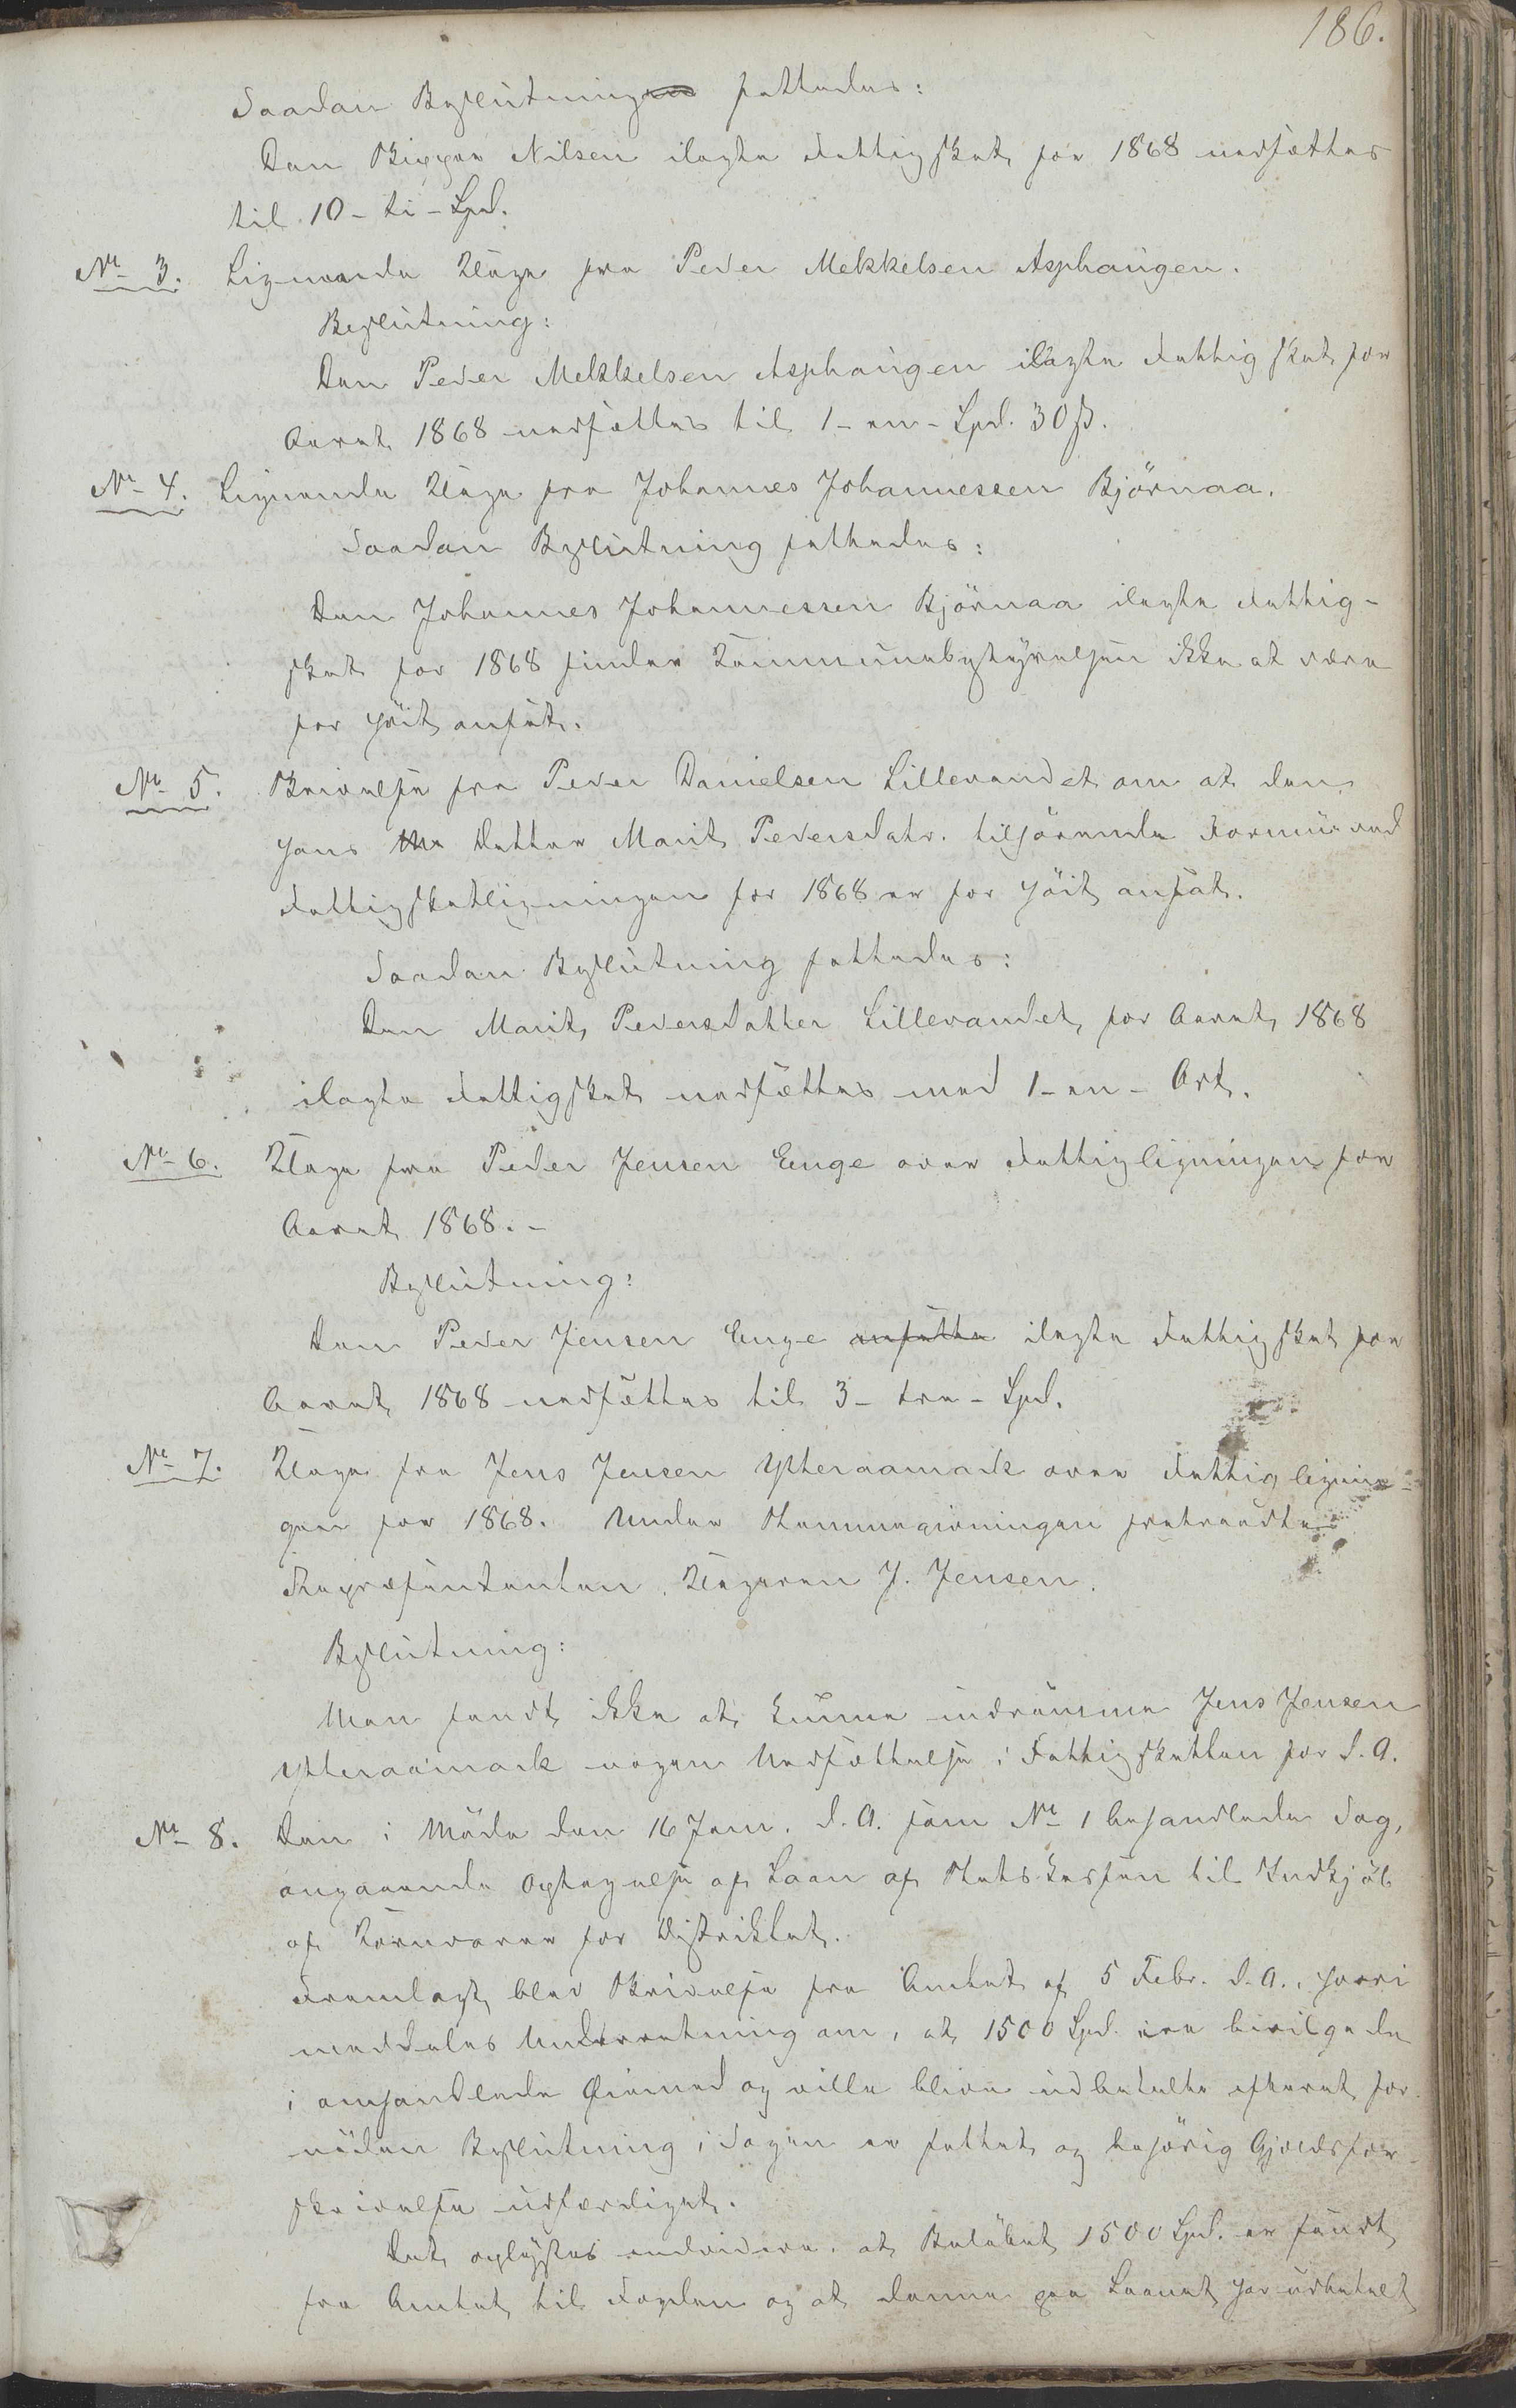 186.
Saadan Beslutning fattedes:
Den Skipper Nilsen ilagte Fattigskat for 1868 nedsættes
til 10 - ti - Spd.
No 3. Lignende Klage fra Peder Mekkelsen Asphaugen.
Beslutning:
Den Peder Mekkelsen Asphaugen ilagte Fattigskat for
Aaret 1868 nedsættes til 1 - en - Spd. 30 ß.
No 4. Lignende Klage fra Johannes Johannessen Bjørnaa.
Saadan Beslutning fattedes:
Den Johannes Johannessen Bjørnaa ilagte Fattig-
skat for 1868 finder Kommunebestyrelsen ikke at være
for høit ansat.
No 5. Skrivelse fra Peder Danielsen Lillevandet om at den
hans Datter Marit Pedersdatr. tilhørende Formue ved
Fattigskatligningen for 1868 er for høit ansat.
Saadan Beslutning fattedes:
Den Marit Pedersdatter Lillevandet for Aaret 1868
ilagte Fattigskat nedsættes med 1 - en - Ort.
No 6. Klage fra Peder Jensen Enge over Fattigligningen for
Aaret 1868. -
Beslutning:
Den Peder Jensen Enge ansatte ilagte Fattigskat for
Aaret 1868 nedsættes til 3 - tre - Spd.
No 7. Klage fra Jens Jensen Ytteraamark over Fattiglignin-
gen for 1868. Under Stemmegivningen fratraadte
Repræsentanten, Klageren J. Jensen.
Beslutning:
Man fandt ikke at kunne indrømme Jens Jensen
Ytteraamark nogen Nedsættelse i Fattigskatten for d. A.
No 8. Den i Møde den 16 Jan. d. A. som No 1 behandlede Sag,
angaaende Optagelse af Laan af Statskassen til Indkjøb
af Kornvarer for Distriktet.
Fremlagt blev Skrivelse fra Amtet af 5 Febr. d. A., hvori
meddeles Underretning om, at 1500 Spd. ere bevilgede
i omhandlede Øiemed og ville blive udbetalte efterat for-
nøden Beslutning i Sagen er fattet og behørig Gjældsfor-
skrivelse udfærdiget.
Det oplystes endvidere, at Beløbet 1500 Spd. er sendt
fra Amtet til Fogden og at denne paa Laanet har udbetalt